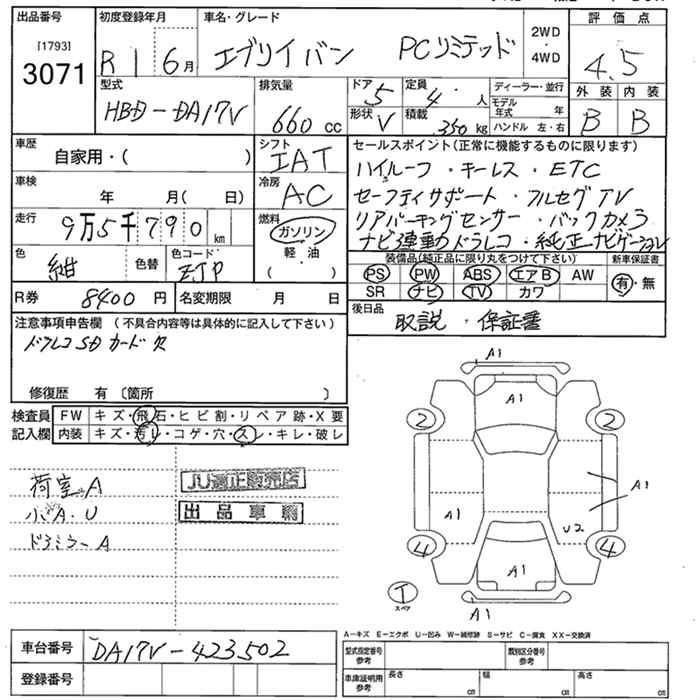 出品番号
初度登録年月
車名・グレード
2WD
・
4WD
評価点
[1793]
3071
R1 6月
エブリイバン PCリミテッド
4.5
型式
HBD-DA17V
排気量
660 cc
ドア 5
形状 V
定員 4 人
積載 350 kg
ディーラー・並行
モデル年式 年
ハンドル 左・右
外装 内装
B B
車歴
自家用・( )
シフト
IAT
セールスポイント(正常に機能するものに限ります)
ハイルーフ・キーレス・ETC
セーフティサポート・フルセグTV
リアパーキングセンサー・バックカメラ
ナビ連動ドラレコ・純正ナビゲーション
車検
年 月( 日)
冷房
AC
走行
9万5千790 km
燃料
ガソリン
軽・油
( )
色
紺
色替
色コード
ZJP
装備品(純正品に限り丸をつけて下さい)
新車保証書
PS PW ABS エアB AW
有・無
SR ナビ TV カワ
R券 8400 円
名変期限 月 日
後日品
取説・保証書
注意事項申告欄(不具合内容等は具体的に記入して下さい)
ドラレコSDカード欠
修復歴 有〔箇所 〕
検査員
記入欄
FW キズ・飛石・ヒビ割・リペア跡・X要
内装 キズ・汚レ・コゲ・穴・スレ・キレ・破レ
荷室A
A・U
ドラミラーA
JU適正販売店
出品車輌
A1
A1
2
2
A1
A1
U2
4
4
A1
A1
T
スペア
A-キズ E-エクボ U-凹み W-補修跡 S-サビ C-腐食 XX-交換済
車台番号
DA17V-423502
登録番号
型式指定番号
参考
類別区分番号
参考
車庫証明用
参考
長さ cm
幅 cm
高さ cm